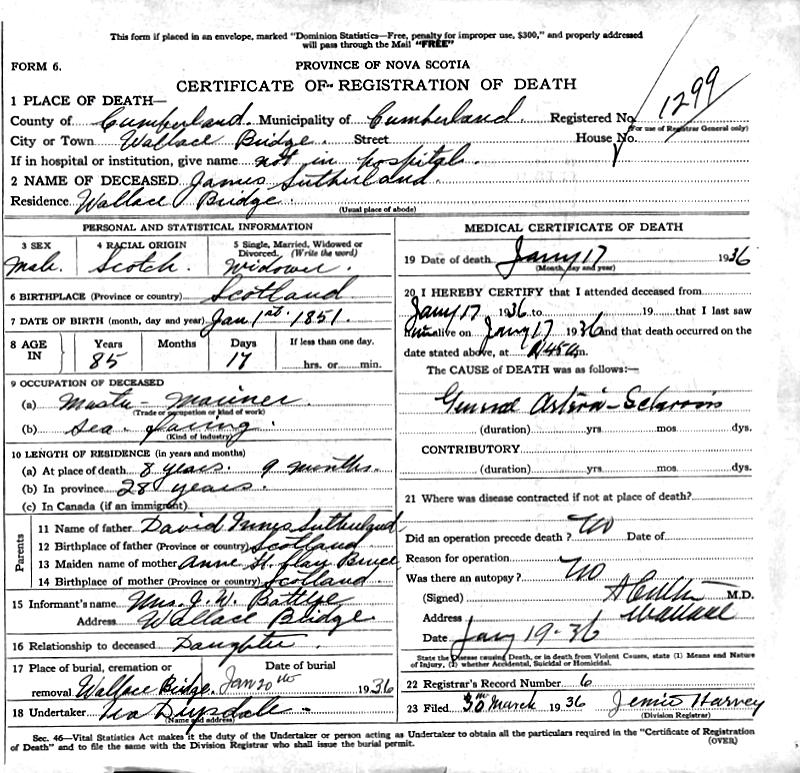 This form if placed in an envelope, marked "Dominion Statistics—Free, penalty for improper use, $300," and properly addressed
will pass through the Mail "FREE"
FORM 6.
PROVINCE OF NOVA SCOTIA
CERTIFICATE OF REGISTRATION OF DEATH
1 PLACE OF DEATH—
County of Cumberland. Municipality of Cumberland Registered No. 1299
(For use of Registrar General only)
City or Town Wallace Bridge. Street House No.
If in hospital or institution, give name not in hospital.
2 NAME OF DECEASED James Sutherland.
Residence Wallace Bridge.
(Usual place of abode)
PERSONAL AND STATISTICAL INFORMATION
3 SEX 4 RACIAL ORIGIN 5 Single, Married, Widowed or Divorced. (Write the word)
Male. Scotch. Widower.
6 BIRTHPLACE (Province or country) Scotland
7 DATE OF BIRTH (month, day and year) Jan 1st 1851.
8 AGE IN Years Months Days If less than one day.
85 17 hrs. or min.
9 OCCUPATION OF DECEASED
(a) Master-Mariner.
(Trade or occupation or kind of work)
(b) Sea-faring.
(Kind of industry)
10 LENGTH OF RESIDENCE (in years and months)
(a) At place of death 8 years. 9 months.
(b) In province 28 years.
(c) In Canada (if an immigrant)
Parents
11 Name of father David Innes Sutherland
12 Birthplace of father (Province or country) Scotland
13 Maiden name of mother Anne Bruce
14 Birthplace of mother (Province or country) Scotland.
15 Informant's name Mrs. J. W. Battye
Address Wallace Bridge.
16 Relationship to deceased Daughter.
17 Place of burial, cremation or Date of burial
removal Wallace Bridge. Jan 20th 1936
18 Undertaker Drysdale
(Name and address)
MEDICAL CERTIFICATE OF DEATH
19 Date of death Jany 17 1936
(Month, day and year)
20 I HEREBY CERTIFY that I attended deceased from
Jany 17 1936 to 19 that I last saw
alive on Jany 17 1936 and that death occurred on
date stated above, at m.
The CAUSE of DEATH was as follows:—
General Arterio-Sclerosis
(duration) yrs. mos dys.
CONTRIBUTORY
(duration) yrs. mos dys.
21 Where was disease contracted if not at place of death?
Did an operation precede death? No Date of
Reason for operation
Was there an autopsy? No
(Signed) M.D.
Address Wallace
Date Jany 19-36
State the Disease causing Death, or in death from Violent Causes, state (1) Means and Nature
of Injury, (2) whether Accidental, Suicidal or Homicidal.
22 Registrar's Record Number 6
23 Filed 30th March 1936 Jennie Harvey
(Division Registrar)
Sec. 46—Vital Statistics Act makes it the duty of the Undertaker or person acting as Undertaker to obtain all the particulars required in the "Certificate of Registration
of Death" and to file the same with the Division Registrar who shall issue the burial permit. (OVER)